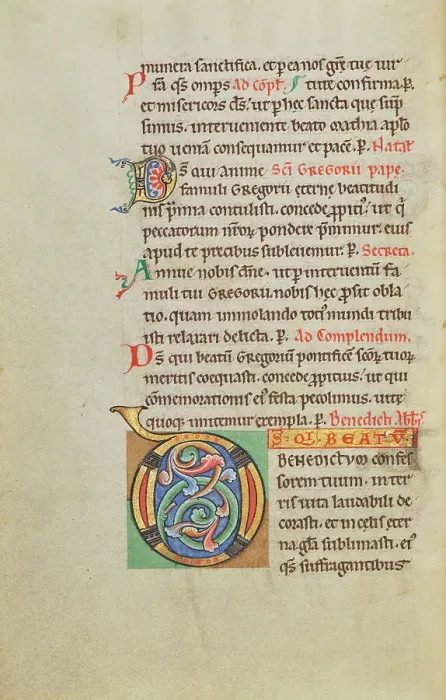 munera sanctifica. et p̄ ea nos grē tuę uir
Psā q̄s om̄ps Ad cōpl̄. tute confirma. P̄.
et misericors ds̄. ut p̄ hec sancta que sūp
simus. interueniente beato mathia aplo
tuo ueniā consequamur et pacē. P̄. Natał
Ds̄ qui anime Sc̄i Gregorii pape.
famuli Gregorii eterne beatitudi
nis p̄mia contulisti. concede ꝓpiti'. ut q̄
peccatorum nr̄oꝝ pondere p̄mimur. eius
apud te precibus subleuemur. P̄. Secreta.
Annue nobis dn̄e. ut p̄ interuentū fa
muli tui Gregorii. nobis hęc ꝓsit obla
tio. quam immolando toti' mundi tribu
isti relaxari delicta. P̄. Ad Complendum.
Ds̄ qui beatū Gregoriū pontificē sc̄oꝝ tuoꝝ
meritis coequasti. concede ꝓpitius. ut qui
cōmemorationis ei' festa pecolimus. uitę
quoq; imitemur exempla. P̄. Benedicti Abb̄
DS. QI. BEATV̄.
BENEDICTVM confes
sorem tuum. inter
ris uita laudabili de
corasti. et in celis eter
na glā sublimasti. ei'
q̄s suffragantibus